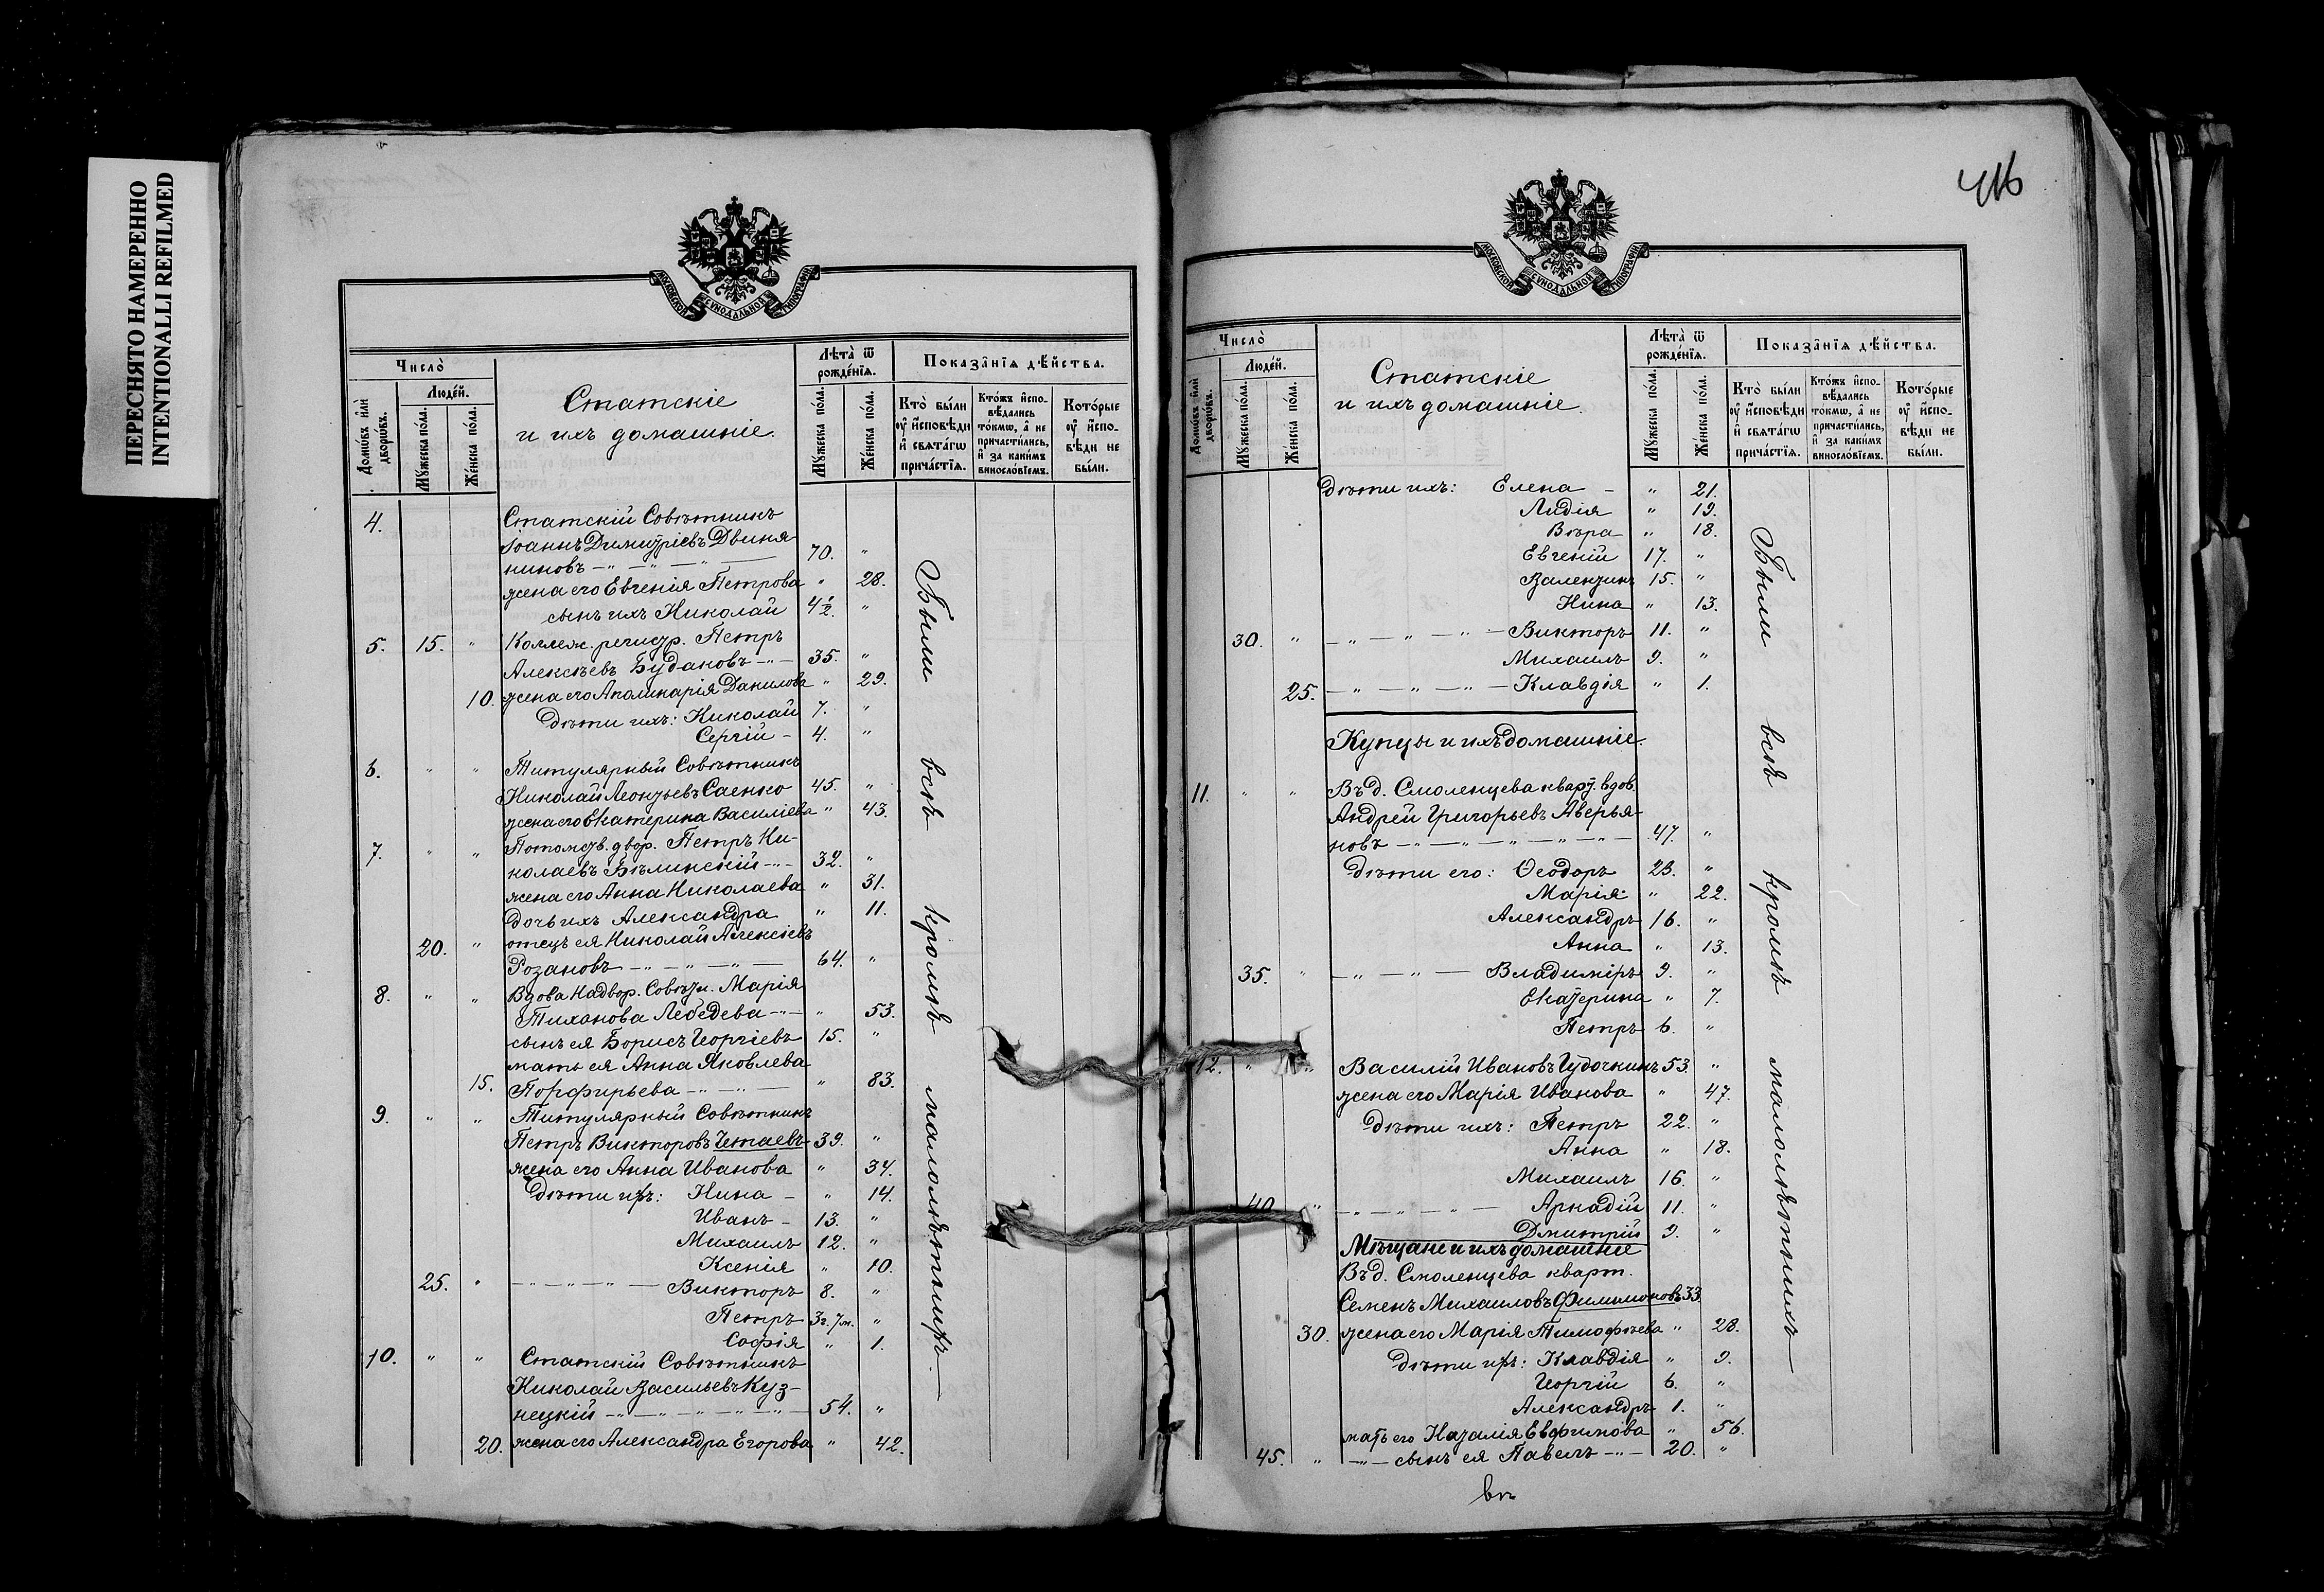 ПЕРЕСНЯТО НАМЕРЕННО
INTENTIONALLI REFILMED
МОСКОВСКОЙ СѴНОДАЛЬНОЙ ТИПОГРАФІИ
Число̀
Людéй.
Домѡ́въ и҆лѝ дворѡ́въ.
Мꙋ́жеска по́ла.
Жéнска по́ла.
Статскіе
и ихъ домашніе.
Лѣта̀ ѿ рождéнїѧ.
Мꙋ́жеска по́ла.
Жéнска по́ла.
Показа̂нїѧ дѣ́йства.
Кто̀ бы́ли ᲂу҆ и҆́сповѣди и҆ свѧта́гѡ прича́стїѧ.
Кто́жъ и҆спо-вѣ́дались то́кмѡ, а҆ не причасти́лись, и҆ за каки́мъ винослóвїемъ.
Кото́рые ᲂу҆ и҆́спо-вѣди не бы́ли.
4. Статскій Совѣтникъ
Іоаннъ Димитріевъ Двиня-
ниновъ —"—"—"— 70. "
жена его Евгенія Петрова " 28.
сынъ ихъ Николай 4½. "
5. 15. " Коллеж. регистр. Петръ
Алексѣевъ Будановъ —"— 35. "
10. жена его Аполинарія Данилова " 29.
Дѣти ихъ: Николай 7. "
Сергій – 4. "
6. " " Титулярный Совѣтникъ
Николай Леонтьевъ Саенко 45. "
жена его Екатерина Василіева " 43.
7. " " Потомств. двор. Петръ Ни-
колаевъ Бѣлинскій —"— 32. "
жена его Анна Николаева " 31.
дочь ихъ Александра " 11.
20. " отецъ ея Николай Алексіевъ
Розановъ —"—"—"— 64. "
8. " " Вдова Надвор. Совѣтн. Марія
Тиханова Лебедева —"— " 53.
сынъ ея Борисъ Георгіевъ 15. "
мать ея Анна Яковлева
15. Порфирьева —"—"— " 83.
9. " " Титулярный Совѣтникъ
Петръ Викторовъ Четаевъ 39. "
жена его Анна Иванова " 34.
Дѣти ихъ: Нина – " 14.
Иванъ – 13. "
Михаилъ 12. "
Ксенія " 10.
25. " —"—"—"— Викторъ 8. "
Петръ 3г. 7м. "
Софія " 1.
10. " " Статскій Совѣтникъ
Николай Васильевъ Куз-
нецкій —"—"—"—"— 54. "
20. жена его Александра Егорова " 42.
Были всѣ кромѣ малолѣтнихъ.—
416
МОСКОВСКОЙ СѴНОДАЛЬНОЙ ТИПОГРАФІИ
Число̀
Людéй.
Домѡ́въ и҆лѝ дворѡ́въ.
Мꙋ́жеска по́ла.
Жéнска по́ла.
Статскіе
и ихъ домашніе.
Лѣта̀ ѿ рождéнїѧ.
Мꙋ́жеска по́ла.
Жéнска по́ла.
Показа̂нїѧ дѣ́йства.
Кто̀ бы́ли ᲂу҆ и҆́сповѣди и҆ свѧта́гѡ прича́стїѧ.
Кто́жъ и҆спо-вѣ́дались то́кмѡ, а҆ не причасти́лись, и҆ за каки́мъ винослóвїемъ.
Кото́рые ᲂу҆ и҆́спо-вѣди не бы́ли.
Дѣти ихъ: Елена – " 21.
Лидія " 19.
Вѣра " 18.
Евгеній 17. "
Валентинъ 15. "
Нина " 13.
30. " —"—"—"— Викторъ 11. "
Михаилъ 9. "
25. —"—"—"— Клавдія " 1.
Купцы и ихъ домашніе.
11. " " Въ д. Смоленцева кварт. вдов.
Андрей Григорьевъ Аверья-
новъ —"—"—"—"— 47. "
Дѣти его: Ѳеодоръ 23. "
Марія " 22.
Александръ 16. "
Анна " 13.
35. " —"—"— Владиміръ 9. "
Екатерина " 7.
Петръ 6. "
12. " " Василій Ивановъ Гудочкинъ 53. "
жена его Марія Иванова " 47.
Дѣти ихъ: Петръ 22. "
Анна " 18.
Михаилъ 16. "
40. " —"—"—"— Аркадій 11. "
Дмитрій 9. "
Мѣщане и ихъ домашніе
Въ д. Смоленцева кварт.
Семенъ Михаиловъ Филимоновъ 33.
30. жена его Марія Тимофѣева " 28.
Дѣти ихъ: Клавдія " 9.
Георгій 6. "
Александръ 1. "
мать его Наталія Евфимова " 56.
45. " —"— сынъ ея Павелъ —"— 20. "
Были всѣ кромѣ малолѣтнихъ—